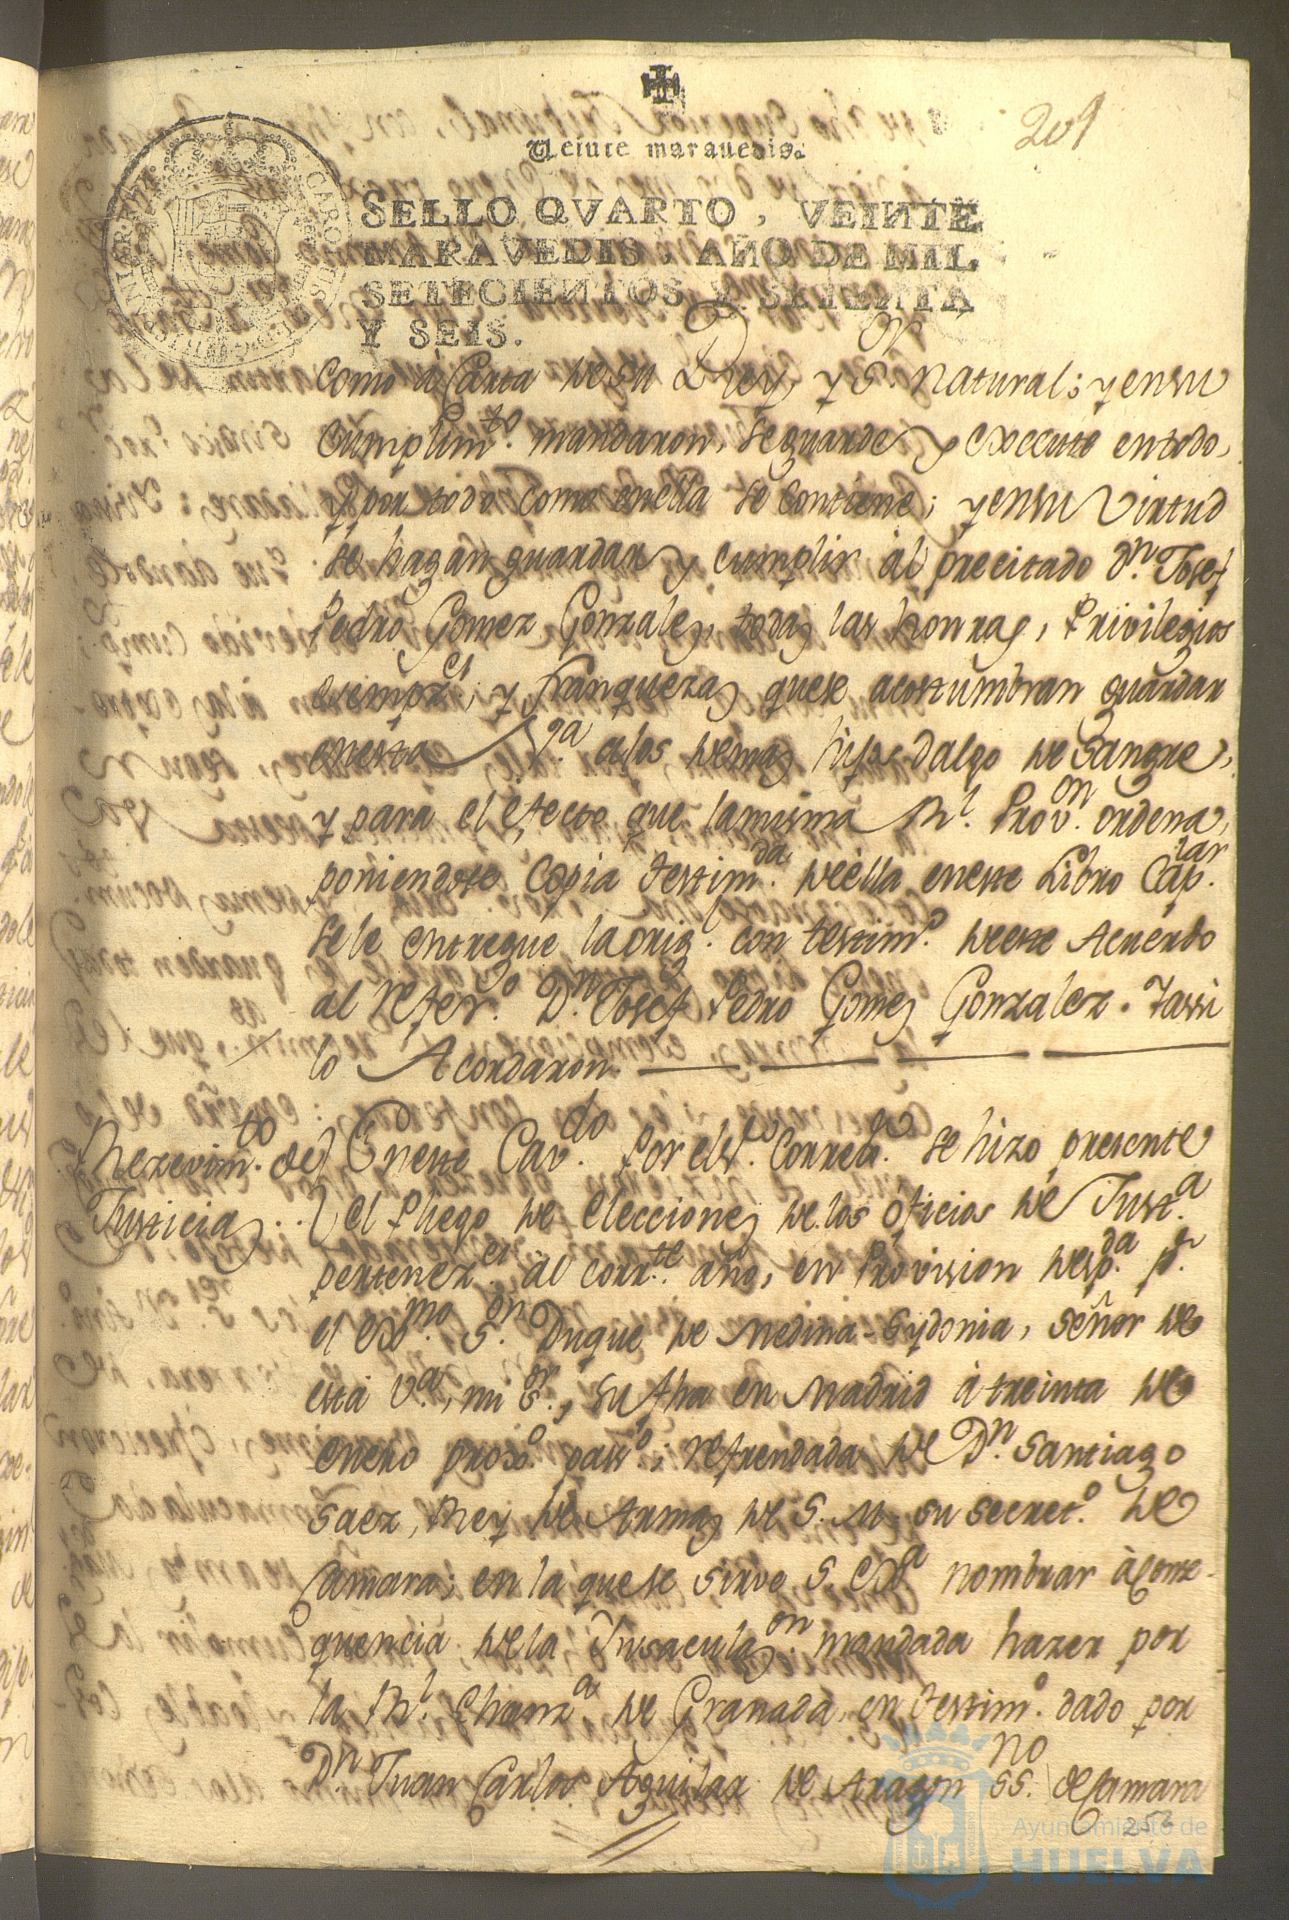 209
Veinte marauedis.
SELLO QVARTO, VEINTE
MARAVEDIS, AÑO DE MIL
SETECIENTOS Y SETENTA
Y SEIS.
como à Carta de su Rey, y Sor. natural; y en su
Cumplimto. mandaron, se guarde y execute en todo,
y por todo como en ella se contiene; y en su Virtud
se hagan guardar y cumplir àl precitado Dn. Josef
Pedro Gomez Gonzalez, todas las honras, Privilegios
esempzes. y franquezas que se acostumbran guardar
en esta va. a los demas hijos dalgo de Sangre,
y para el efecto que la misma Rl. Provon. ordena,
poniendose Copia testimda. de èlla en este Libro Caplar.
se le entregue la origl. con testimo. de este Acuerdo
al refero. Dn. Josef Pedro Gomez Gonzalez. Y assi
lo Acordaron.
Rezevimto. de
Justicias
En este Cavdo. Por el Sor. Corregor. se hizo presente
el Pliego de elecciones de los oficios de Justa.
pertenezes. àl corrte. año, en Provision despda. pr.
el Exmo. Sor. Duque de Medina-Sydonia, señor de
esta va., mi Sor., su fha en Madrid à treinta de
enero proxo. passo.; refrendada de Dn. Santiago
Saez, Rey de Armas de S. M. su secreto. de
Camara; en la que se sirve S. Exa. nombrar à conse-
quencia de la Insaculaon. mandada hazer por
la Rl. Chanza. de Granada, en testimo. dado por
Dn. Juan Carlos Aguilar de Aragon ssno. de Camara
252
Ayuntamiento de
HUELVA